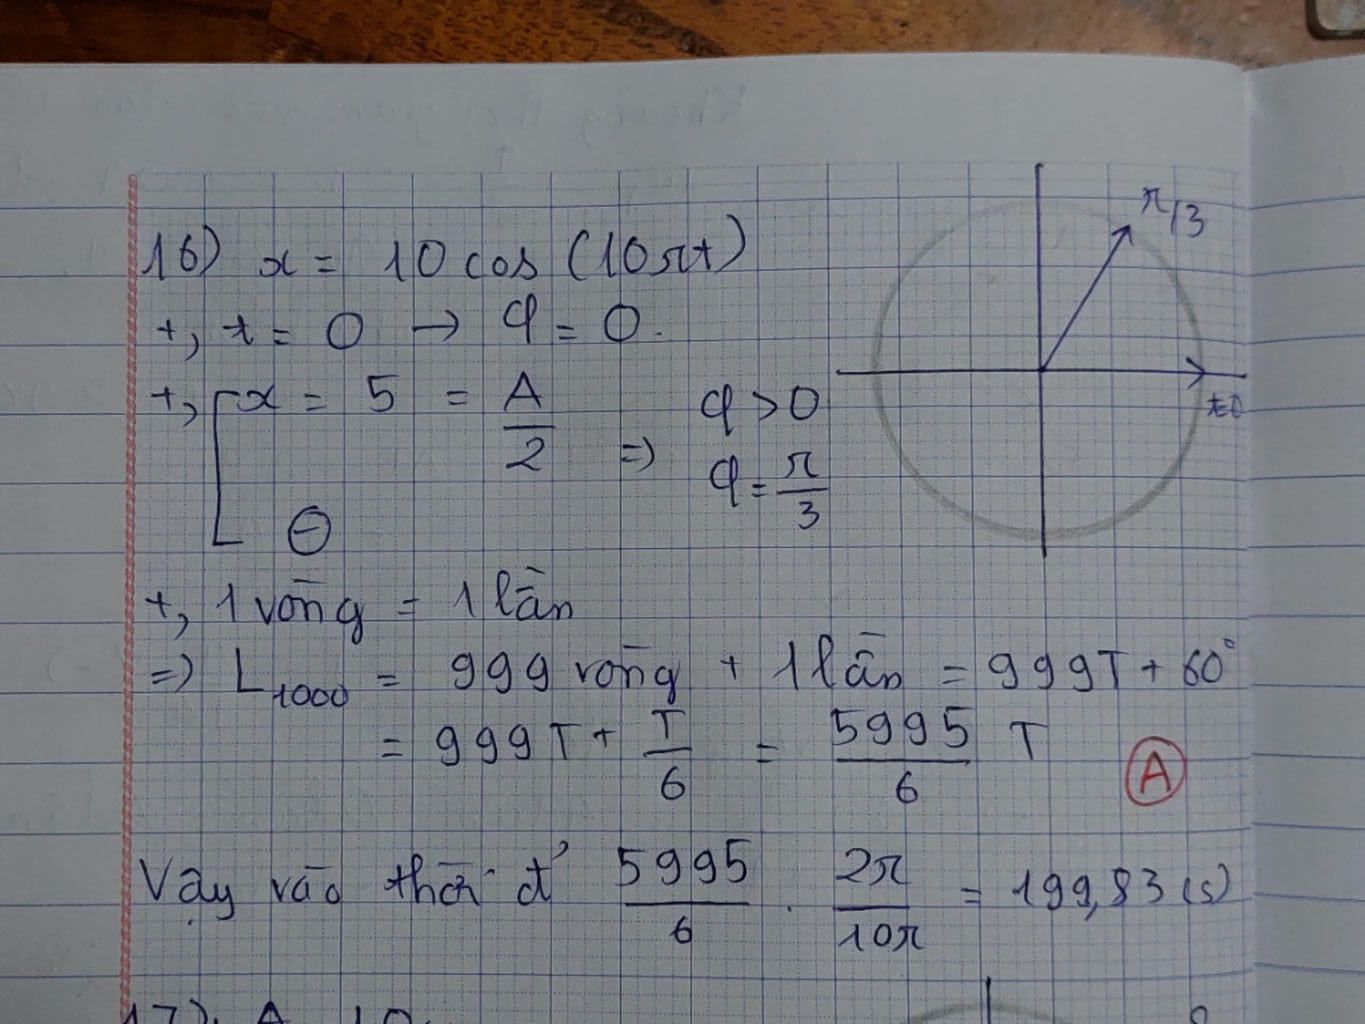 16) x = 10 cos (10πt)
+, t = 0 → φ = 0.
+, [ x = 5 = A/2 ⇒ φ > 0
⊖ φ = π/3
π/3
t=0
+, 1 vòng = 1 lần
⇒ L₁₀₀₀ = 999 vòng + 1 lần = 999T + 60°
= 999T + T/6 = 5995/6 T
A
Vậy vào thời đ' 5995/6 . 2π/10π = 199,83 (s)